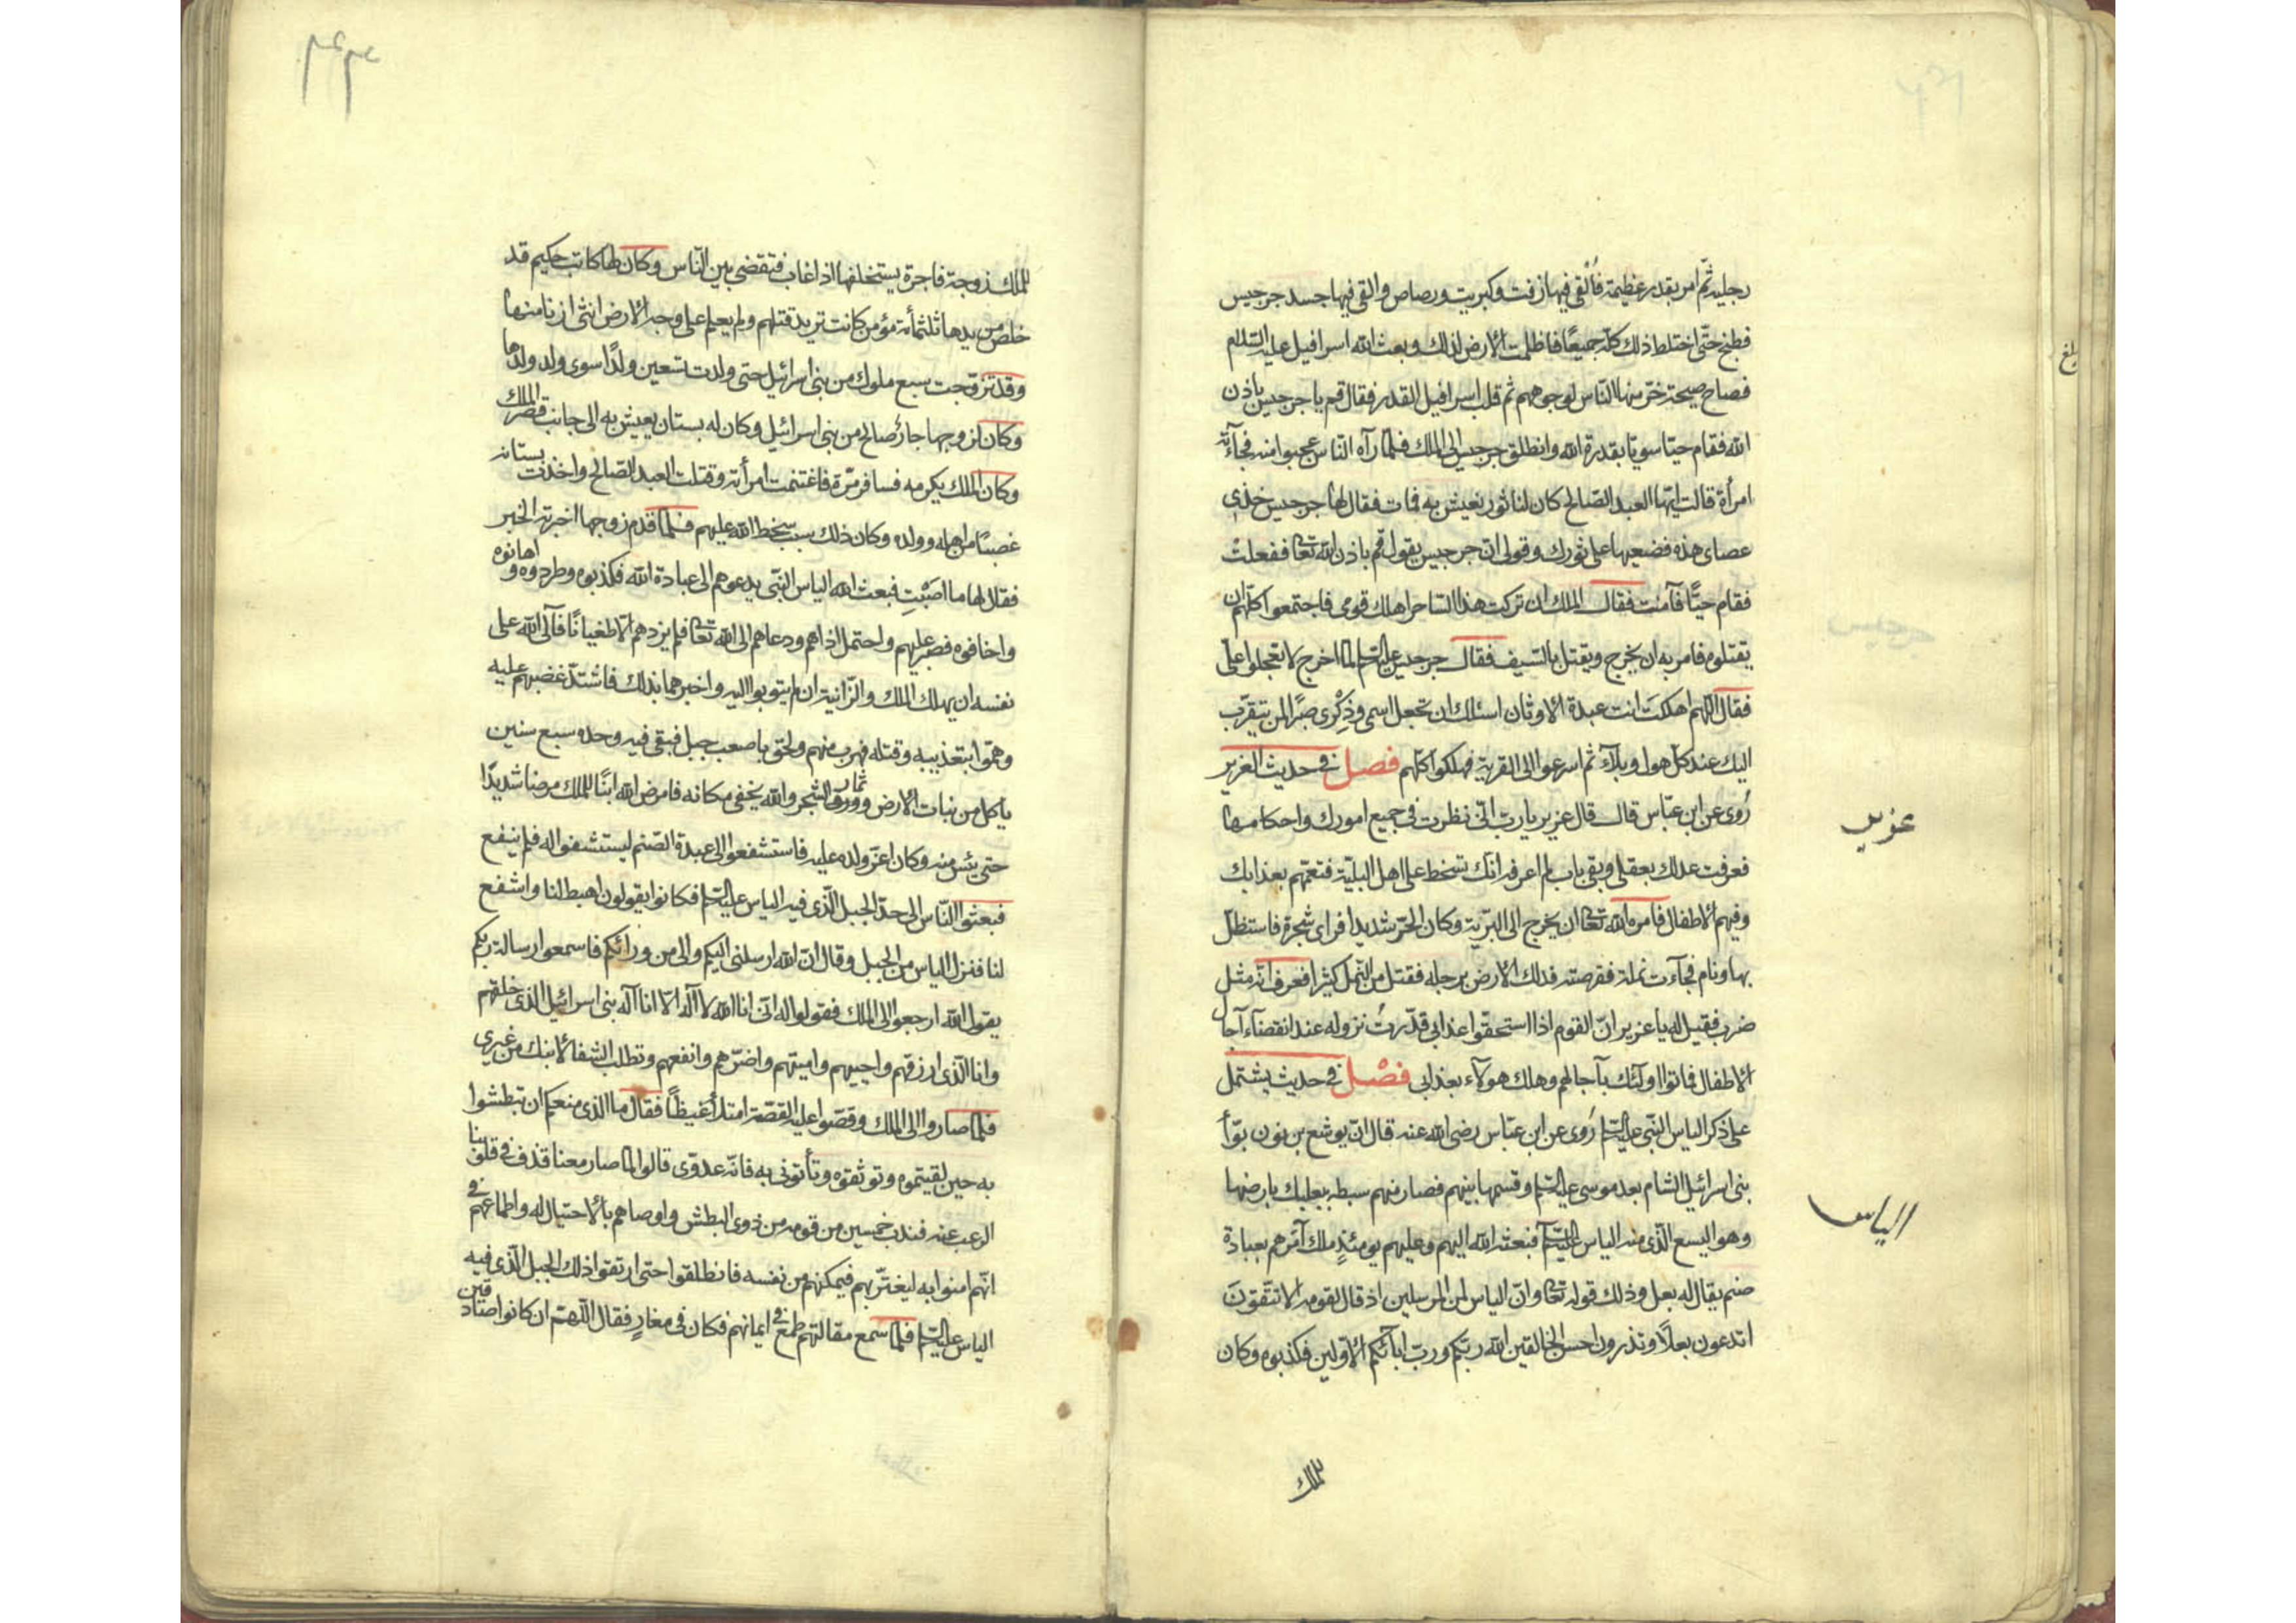 رجليه ثمّ امر بقدر عظيمة فأُلقي فيها زفت وكبريت ورصاص والقي فيها جسد جرجيس
فطبخ حتّى اختلط ذلك كلّه جميعًا فاظلمت الارض لذلك وبعث الله اسرافيل عليه السّلام
فصاح صيحة خرّ منها النّاس لوجوههم ثم قلب اسرافيل القدر فقال قم يا جرجيس باذن
الله فقام حيّا سويّا بقدرة الله وانطلق جرجيس الى الملك فلمّا رآه النّاس عجبوا منه فجآءته
امرأة قالت ايّها العبد الصّالح كان لنا ثور نعيش به فمات فقال لها جرجيس خذي
عصاى هذه فضعيها على ثورك وقولى انّ جرجيس يقول قم باذن الله تعا ففعلتْ
فقام حيًّا فآمنت فقال الملك ان تركت هذا السّاحر اهلك قومى فاجتمعوا كلّهم ان
يقتلوه فامر به ان يخرج ويقتل بالسّيف فقال جرجيس عليه السّلم لمّا اخرج لا تعجلوا علىّ
فقال اللّهم اهلكتَ انت عبدة الاوثان اسئلك ان تجعل اسمى وذِكْرى صبرًا لمن يتقرّب
اليك عند كلّ هول وبلآء ثم اسرعوا الى القرية فهلكوا كلّهم فصل فى حديث العزير
رُوى عن ابن عبّاس قال قال عزير يا ربّ انّى نظرت فى جميع امورك واحكامها
عزير
فعرفت عدلك بعقلى وبقى باب لم اعرفه انّك تسخط على اهل البليّة فتعمّهم بعذابك
وفيهم الاطفال فامره الله تعا ان يخرج الى البرّية وكان الحرّ شديدا فراى شجرة فاستظلّ
بها ونام فجآءت نملة فقرصته فدلك الارض برجله فقتل من النّمل كثيرا فعرف انّه مثل
ضرب فقيل له يا عزير انّ القوم اذا استحقّوا عذابى قدّرتُ نزوله عند انقضآء آجال
الاطفال فماتوا اولئك بآجالهم وهلك هولآء بعذابى فصْل فى حديث يشتمل
على ذكر الياس النّبى عليه السّلم رُوى عن ابن عبّاس رضى الله عنه قال انّ يوشع بن نون بوّأ
بنى اسرائيل الشام بعد موسى عليه السّلم وقسمها بينهم فصار منهم سبط ببعلبك بارضها
الياس
وهو اليسع الّذى منه الياس عليه السّلم فبعثه الله اليهم وعليهم يومئذٍ ملك آمرهم بعبادة
صنم يقال له بعل وذلك قوله تعا وانّ الياس لمن المرسلين اذ قال لقومه الا تتّقونَ
اتدعون بعلًا وتذرون احسن الخالقين الله ربّكم وربّ ابآئكم الاوّلين فكذبوه وكان
للملك
للملك زوجة فاجرة يستخلفها اذا غاب فتقضى بين النّاس وكان لها كاتب حكيم قد
خلص من يدها ثلثمأئة مؤمن كانت تريد قتلهم ولم يعلم على وجه الارض انثى ازنا منها
وقد تزوّجت سبع ملوك من بنى اسرائيل حتى ولدت تسعين ولدًا سوى ولد ولدها
وكان لزوجها جارٌ صالح من بنى اسرائيل وكان له بستان يعيش به الى جانب قصر الملك
وكان الملك يكرمه فسافر مرّة فاغتنمت امرأته وقتلت العبد الصّالح واخذت بستانه
غصبًا من اهله وولده وكان ذلك سبب سخط الله عليهم فلمّا قدم زوجها اخبرته الخبر
فقال لها ما اصَبْتِ فبعث الله الياس النّبى يدعوهم الى عبادة الله فكذبوه وطردوه واهانوه
واخافوه فصبر عليهم واحتمل اذاهم ودعاهم الى الله تعا فلم يزدهم الّا طغيانًا فآلى الله على
نفسه ان يهلك الملك والزّانية ان لم يتوبوا اليه واخبرهما بذلك فاشتدّ غضبهم عليه
وهمّوا بتعذيبه وقتله فهرب منهم ولحق باصعب جبل فبقى فيه وحده سبع سنين
ياكل من نبات الارض وورق ثمار الشجر والله يخفى مكانه فامرض الله ابنًا للملك مرضا شديدًا
حتى يئس منه وكان اعزّ ولده عليه فاستشفعوا الى عبدة الصّنم ليستشفوا له فلم ينفع
فبعثوا النّاس الى حدّ الجبل الّذى فيه الياس عليه السّلم فكانوا يقولون اهبط لنا واشفع
لنا فنزل الياس من الجبل وقال انّ الله ارسلنى اليكم والى من ورائكم فاسمعوا رسالة ربّكم
يقول الله ارجعوا الى الملك فقولوا له انّى انا الله لا آله الّا انا آله بنى اسرائيل الذى خلقهم
وانا الّذى ارزقهم واحييهم واميتهم واضرّهم وانفعهم وتطلب الشفا لابنك من غيرى
فلمّا صاروا الى الملك وقصّوا عليه القصّة امتلأ غيظًا فقال ما الذى منعكم ان تبطشوا
به حين لقيتموه وتوثقوه وتأتونى به فانّه عدوّى قالوا لمّا صار معنا قذف فى قلوبنا
الرعب عنه فندب خمسين من قومه من ذوى البطش واوصاهم بالاحتيال له واطماعهم فى
انّهم امنوا به ليغترّ بهم فيمكنهم من نفسه فانطلقوا حتى ارتقوا ذلك الجبل الّذى فيه
الياس عليه السّلم فلمّا سمع مقالتهم طمع فى ايمانهم فكان فى مغارٍ فقال اللّهمّ ان كانوا صادقين